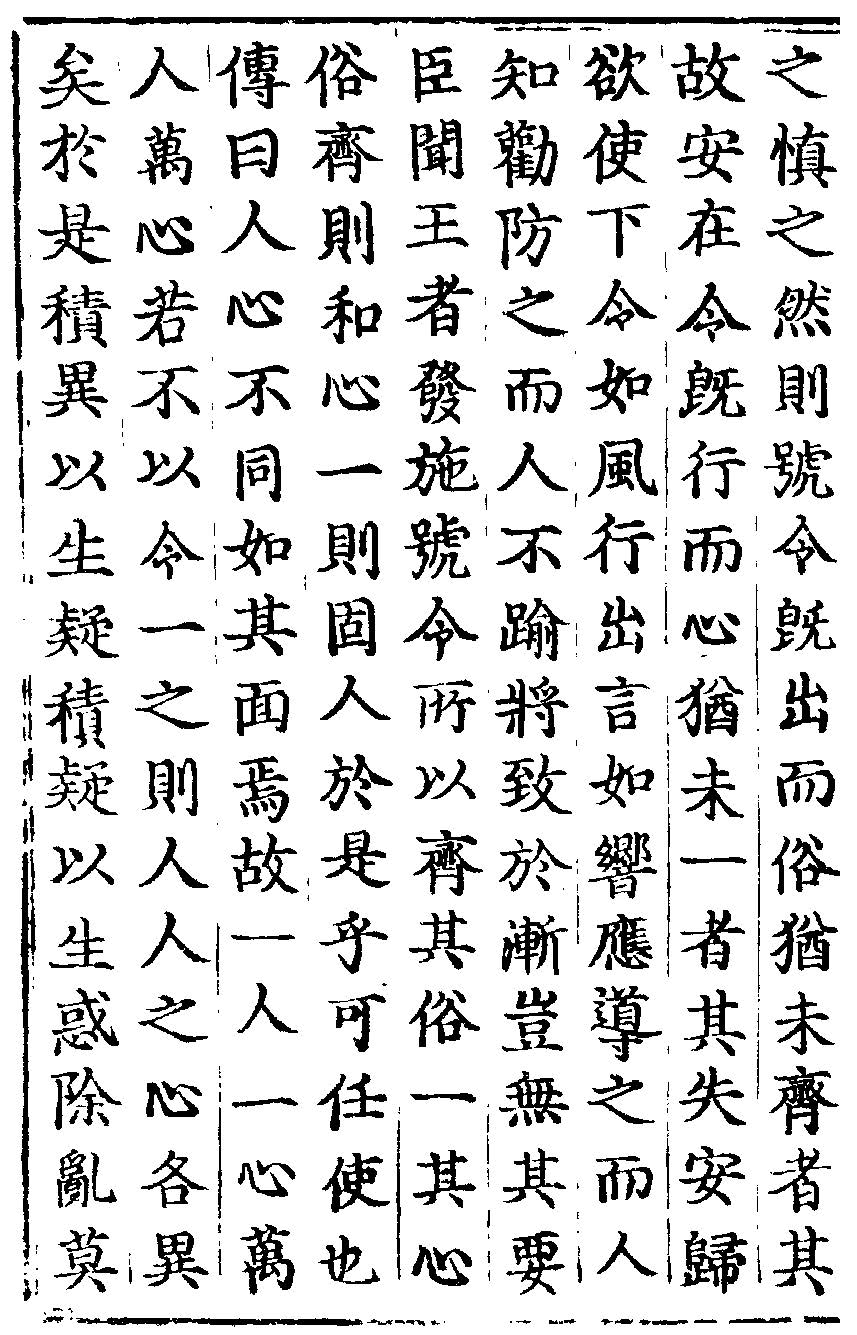 之慎之然則號令旣出而俗猶未齊者其
故安在令旣行而心猶未一者其失安歸
欲使下令如風行出言如響應導之而人
知勸防之而人不踰將致於漸豈無其要
臣聞王者發施號令所以齊其俗一其心
俗齊則和心一則固人於是乎可任使也
傳曰人心不同如其面焉故一人一心萬
人萬心若不以令一之則人人之心各異
矣於是積異以生疑積疑以生惑除亂莫